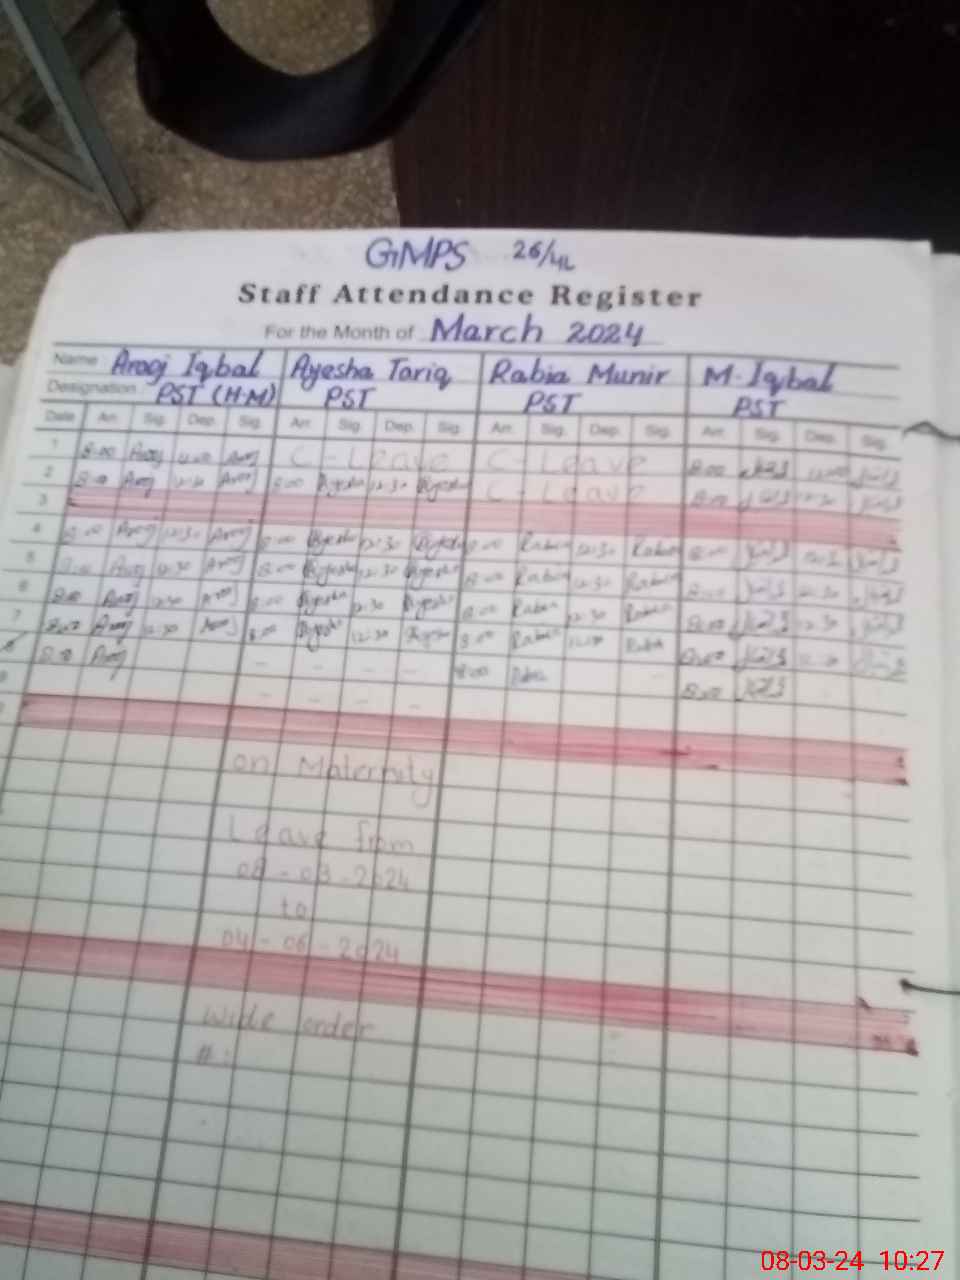 GMPS 26/4L
Staff Attendance Register
For the Month of March 2024
Name Arooj Iqbal Ayesha Tariq Rabia Munir M. Iqbal
Designation PST (H-M) PST PST PST
Date Arr. Sig. Dep. Sig. Arr. Sig. Dep. Sig. Arr. Sig. Dep. Sig. Arr. Sig. Dep. Sig.
1 8:00 Arooj Arooj C-Leave C-Leave 8:00
2 8:00 Arooj 12:30 Arooj 8:00 Ayesha 12:30 Ayesha C-Leave 8:00 12:30
3
4 8:00 Arooj 12:30 Arooj 8:00 Ayesha 12:30 Ayesha 8:00 Rabia 12:30 Rabia 8:00
5 8:00 Arooj 12:30 Arooj 8:00 Ayesha 12:30 Ayesha 8:00 Rabia 12:30 Rabia 8:00 12:30
6 8:00 Arooj 12:30 Arooj 8:00 Ayesha 12:30 Ayesha 8:00 Rabia 12:30 Rabia 8:00 12:30
7 8:00 Arooj 12:30 Arooj 8:00 Ayesha 12:30 Ayesha 8:00 Rabia Rabia 8:00 12:30
8 8:00 Arooj 8:00 Rabia 8:00
on Maternity
Leave from
08-03-2024
to
04-06-2024
wide order
#:
08-03-24 10:27